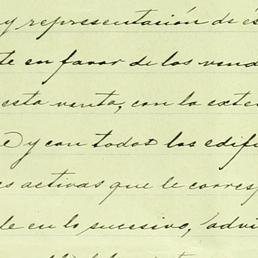 y representación de és
te en favor de los vend
esta venta, con la exten
e) y con todos los edifi
es activas que le corresp
de en lo sucesivo, advi